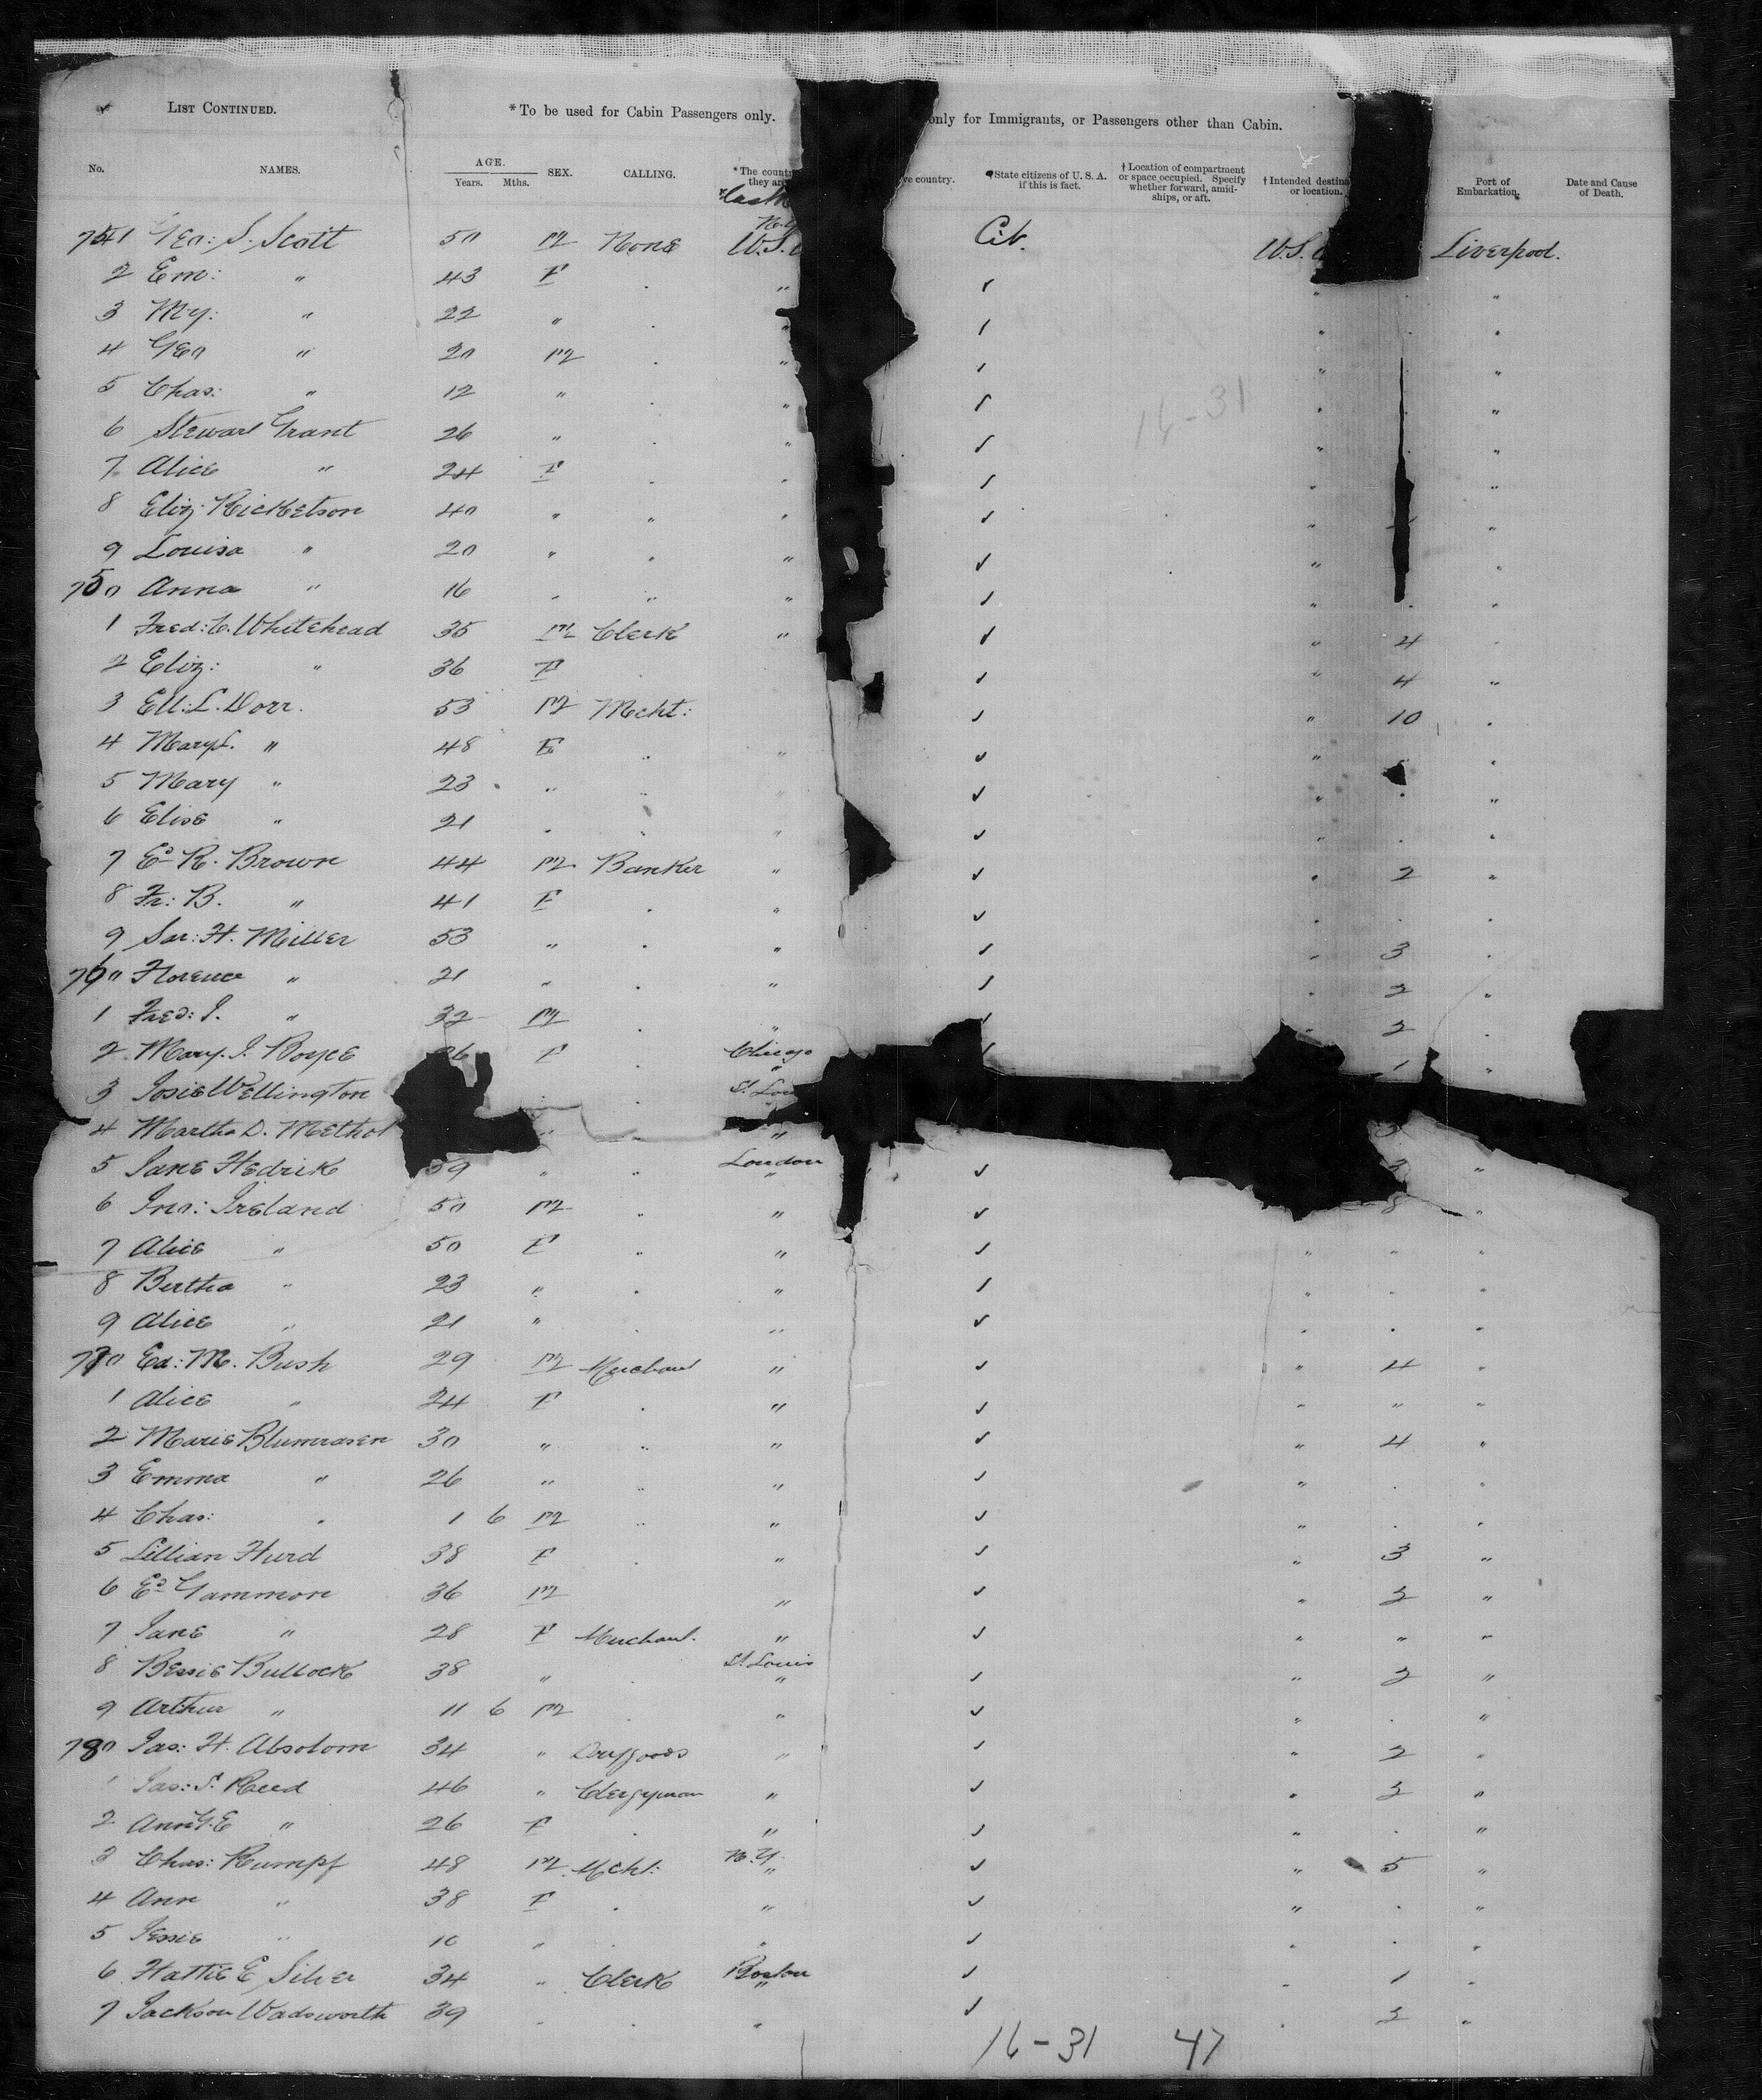 LIST CONTINUED. *To be used for Cabin Passengers only. only for Immigrants, or Passengers other than Cabin.
No. NAMES. AGE. Years. Mths. SEX. CALLING. *The country they are country. State citizens of U. S. A. if this is fact. †Location of compartment or space occupied. Specify whether forward, amidships, or aft. †Intended destina or location. Port of Embarkation. Date and Cause of Death.
N.Y
741 Geo: S. Scott 50 M None U.S. Cit. U.S. Liverpool.
2 Em: " 43 F " " "
3 My: " 22 " " " "
4 Geo " 20 M " " "
5 Chas: " 12 " " " "
6 Stewart Grant 26 " " " "
7 Alice " 24 F " " "
8 Eliz: Ricketson 40 " " " " "
9 Louisa " 20 " " " " "
750 Anna " 16 " " " " "
1 Fred: C. Whitehead 35 M Clerk " " 4 "
2 Eliz: " 36 F " 4 "
3 Ell: L. Dorr. 53 M Mcht: " 10 "
4 Mary L. " 48 F " " "
5 Mary " 23 " " " " "
6 Elise " 21 " " " " "
7 Ed R. Brown 44 M Banker " " 2 "
8 Fr: B. " 41 F " " "
9 Sar: H. Miller 53 " " " 3 "
760 Florence " 21 " " " 2 "
1 Fred: J. " 32 M " " 2 "
2 Mary. J. Boyce 26 F Chicago 1 "
3 Josie Wellington St. Lou
4 Martha D. " "
5 Jane Hedrik 59 " " London " "
6 Jno: Ireland 50 M " " 8 "
7 Alice " 50 F " " " " "
8 Bertha " 23 " " " "
9 Alice " 21 " " " "
770 Ed: M. Bush 29 M Merchant " " 4 "
1 Alice " 24 F " " " "
2 Marie Blumrasen 30 " " " " 4 "
3 Emma " 26 " " " " "
4 Chas: " 1 6 M " " " "
5 Lillian Hurd 38 F " " 3 "
6 Ed Gammon 36 M " " 2 "
7 Jane " 28 F Merchant. " " " "
8 Bessie Bullock 38 " St. Louis " " 2 "
9 Arthur " 11 6 M " " "
780 Jas: H. Absolom 34 " Drygoods " " 2 "
1 Jas: S. Reed 46 " Clergyman " " 2 "
2 Ann G. E " 26 F " " "
3 Chas: Rumpf 48 M Mcht: N.Y. " " 5 "
4 Ann " 38 F " " "
5 Jessie " 10 " " "
6 Hattie E Silver 34 " Clerk Boston " " 1 "
7 Jackson Wadsworth 39 " " " 2 "
16-31
16-31 47